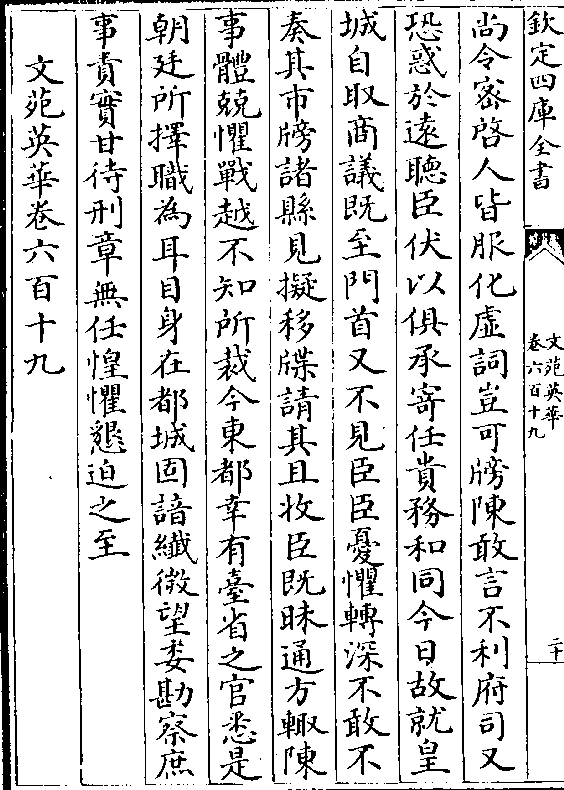 欽定四庫全書
文苑英華
卷六百十九
二十
尚令密啓人皆服化虛詞豈可牓陳敢言不利府司又
恐惑於遠聽臣伏以俱承寄任貴務和同今日故就皇
城自取商議既至門首又不見臣臣憂懼轉深不敢不
奏其市牓諸縣見擬移牒請其且收臣既昧通方輙陳
事體兢懼戰越不知所裁今東都幸有臺省之官悉是
朝廷所擇職為耳目身在都城固諳纎微望委勘察庶
事責實甘待刑章無任惶懼懇迫之至
文苑英華卷六百十九